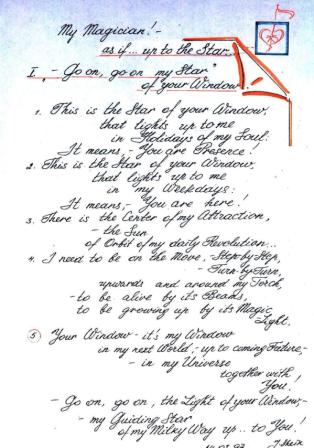 My Magician! -
as if... up to the Star...
I. - Go on, go on my Star"
of your Window!
1. This is the Star of your Window,
that lights up to me
in Holidays of my Soul:
It means, - You are Presence!
2. This is the Star of your Window,
that lights up to me
in my Weekdays:
It means, - You are here!
3. There is the Center of my Attraction,
- the Sun
of Orbit of my daily Revolution...
4. I need to be on the Move, - Step-by-Step,
- Turn-by-Turn,
upwards and around my Torch,
- to be alive by its Beams,
to be growing up by its Magic
Light.
5 Your Window - it's my Window
in my next World, - up to coming Future, -
- in my Universe
together with
You!
- Go on, go on, the Light of your Window, -
- my Guiding Star
of my Milky Way up... to You!